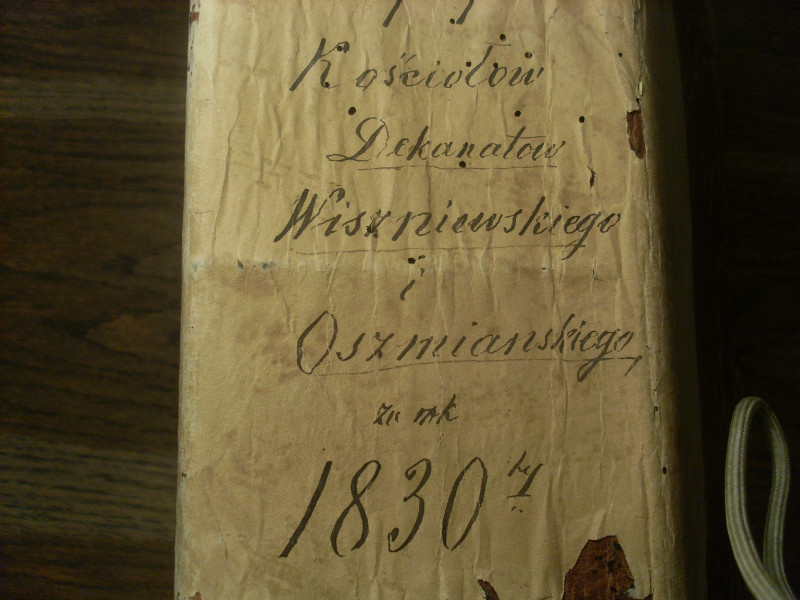 Kościołow
Dekanatow
Wiszniewskiego
i
Oszmianskiego,
za rok
1830 ty